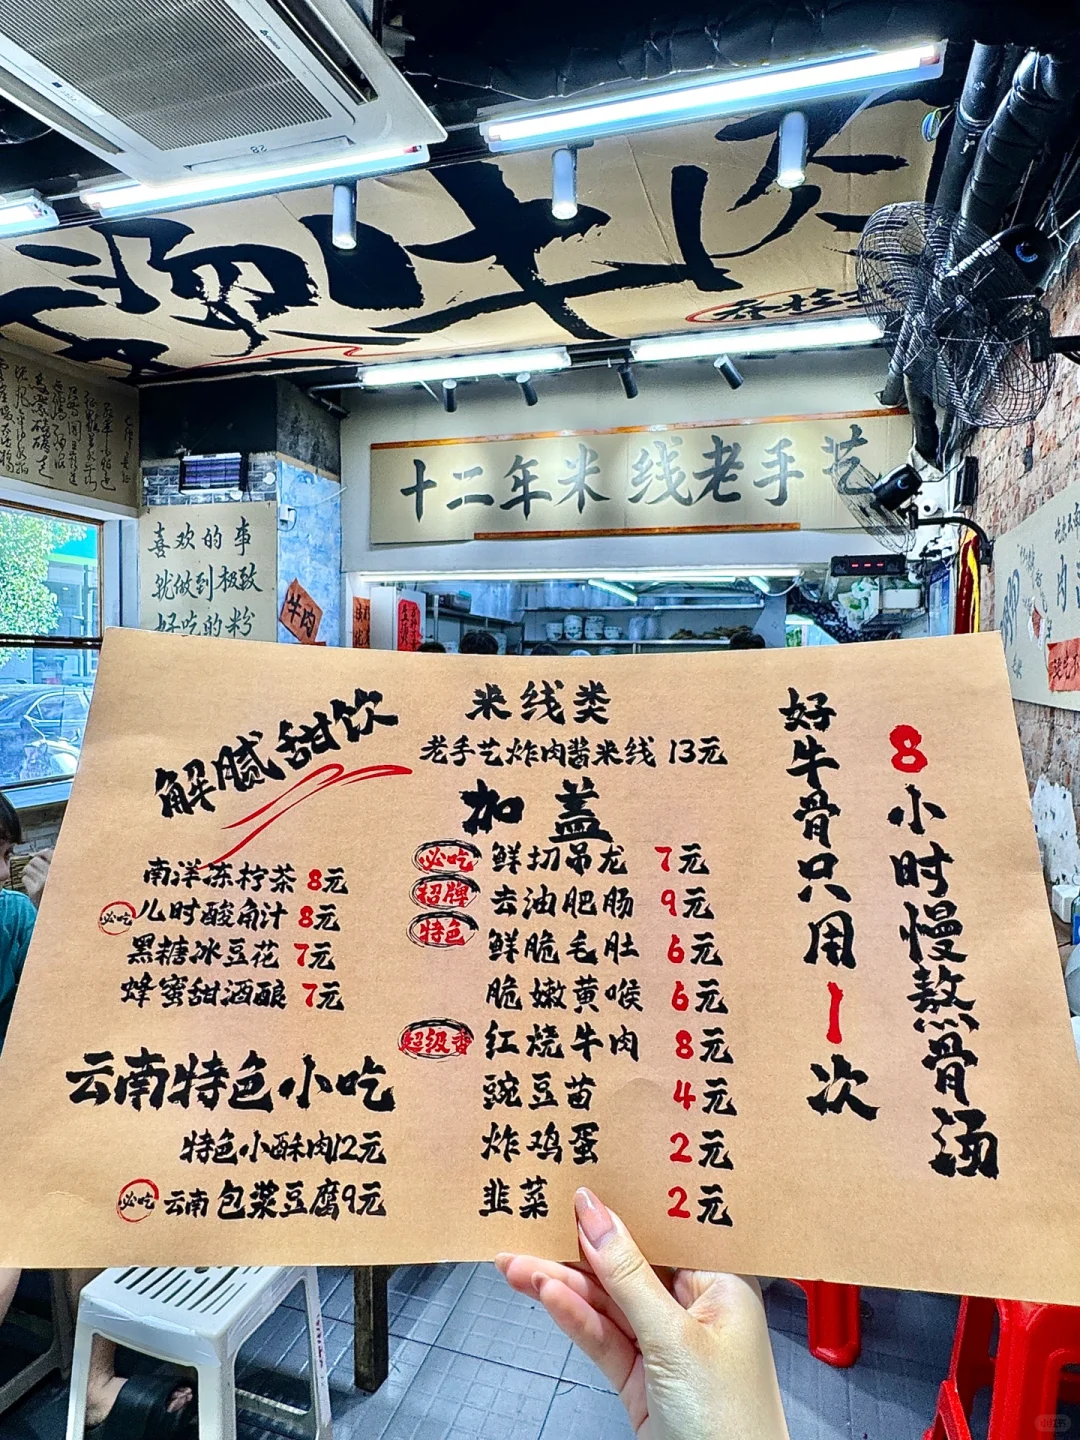 十二年米线老手艺
喜欢的事
就做到极致
好吃的粉
牛肉
解腻甜饮
南洋冻柠茶 8元
必吃 儿时酸角汁 8元
黑糖冰豆花 7元
蜂蜜甜酒酿 7元
云南特色小吃
特色小酥肉12元
必吃 云南包浆豆腐9元
米线类
老手艺炸肉酱米线 13元
加盖
必吃 鲜切吊龙 7元
招牌 去油肥肠 9元
特色 鲜脆毛肚 6元
脆嫩黄喉 6元
超级香 红烧牛肉 8元
豌豆苗 4元
炸鸡蛋 2元
韭菜 2元
8小时慢熬骨汤
好牛骨只用1次
小红书